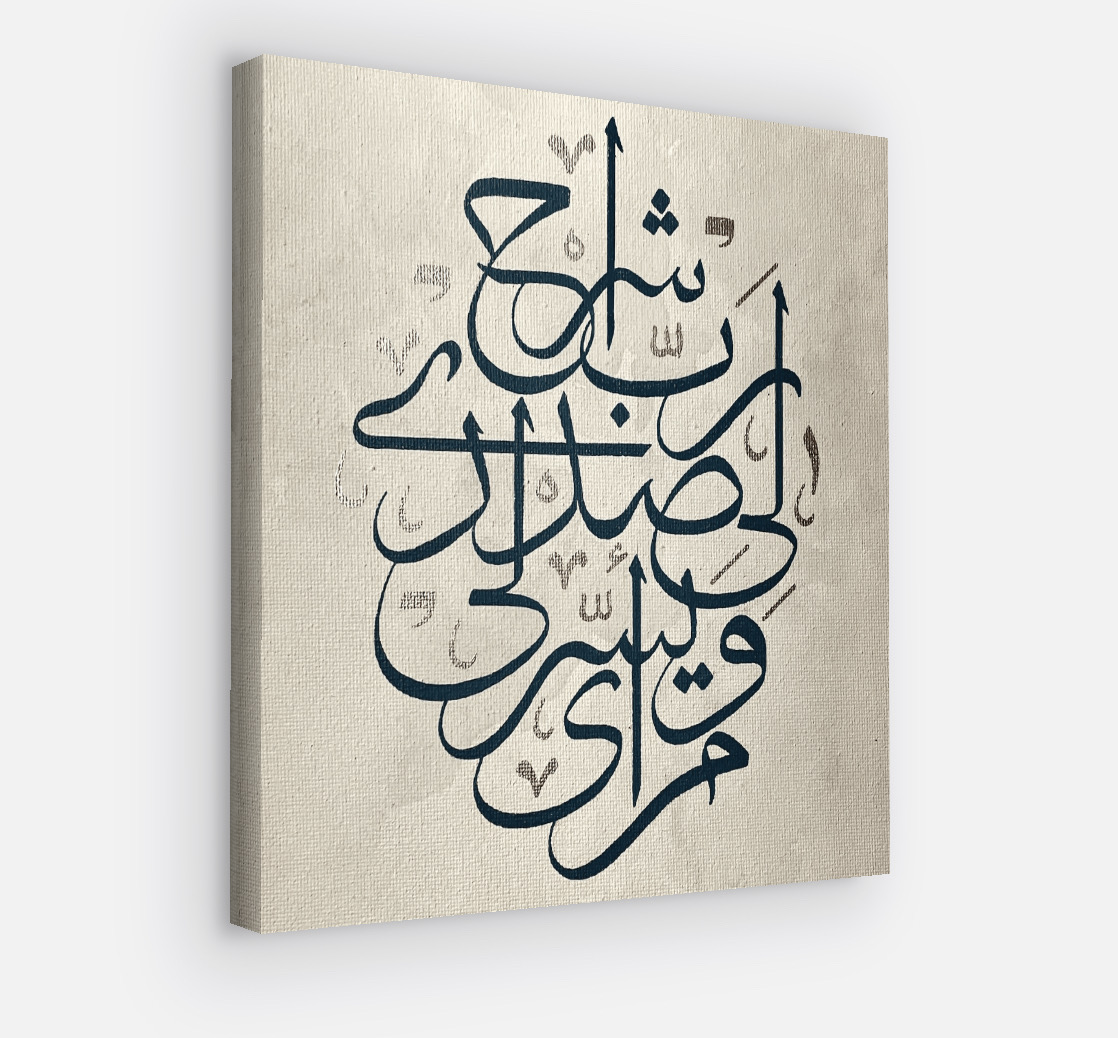 رب اشرح
لي صدري
ويسر لي
أمري